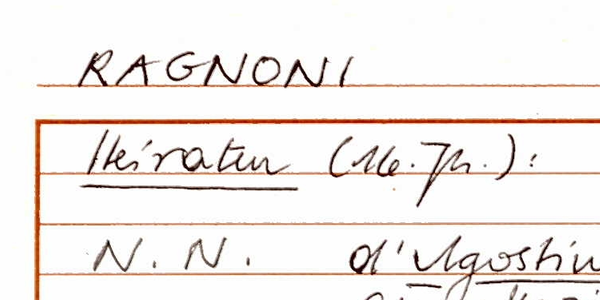 RAGNONI
Heiraten (16. Jh.):
N. N. d'Agostin